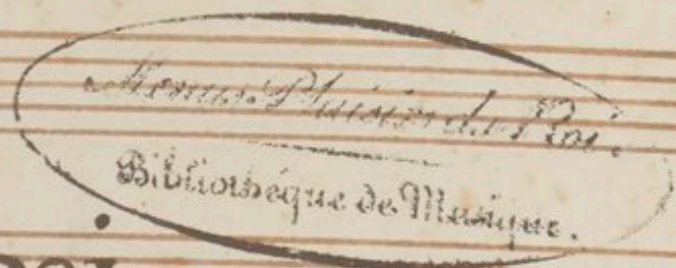 Menus-Plaisirs du Roi.
Bibliothéque de Musique.